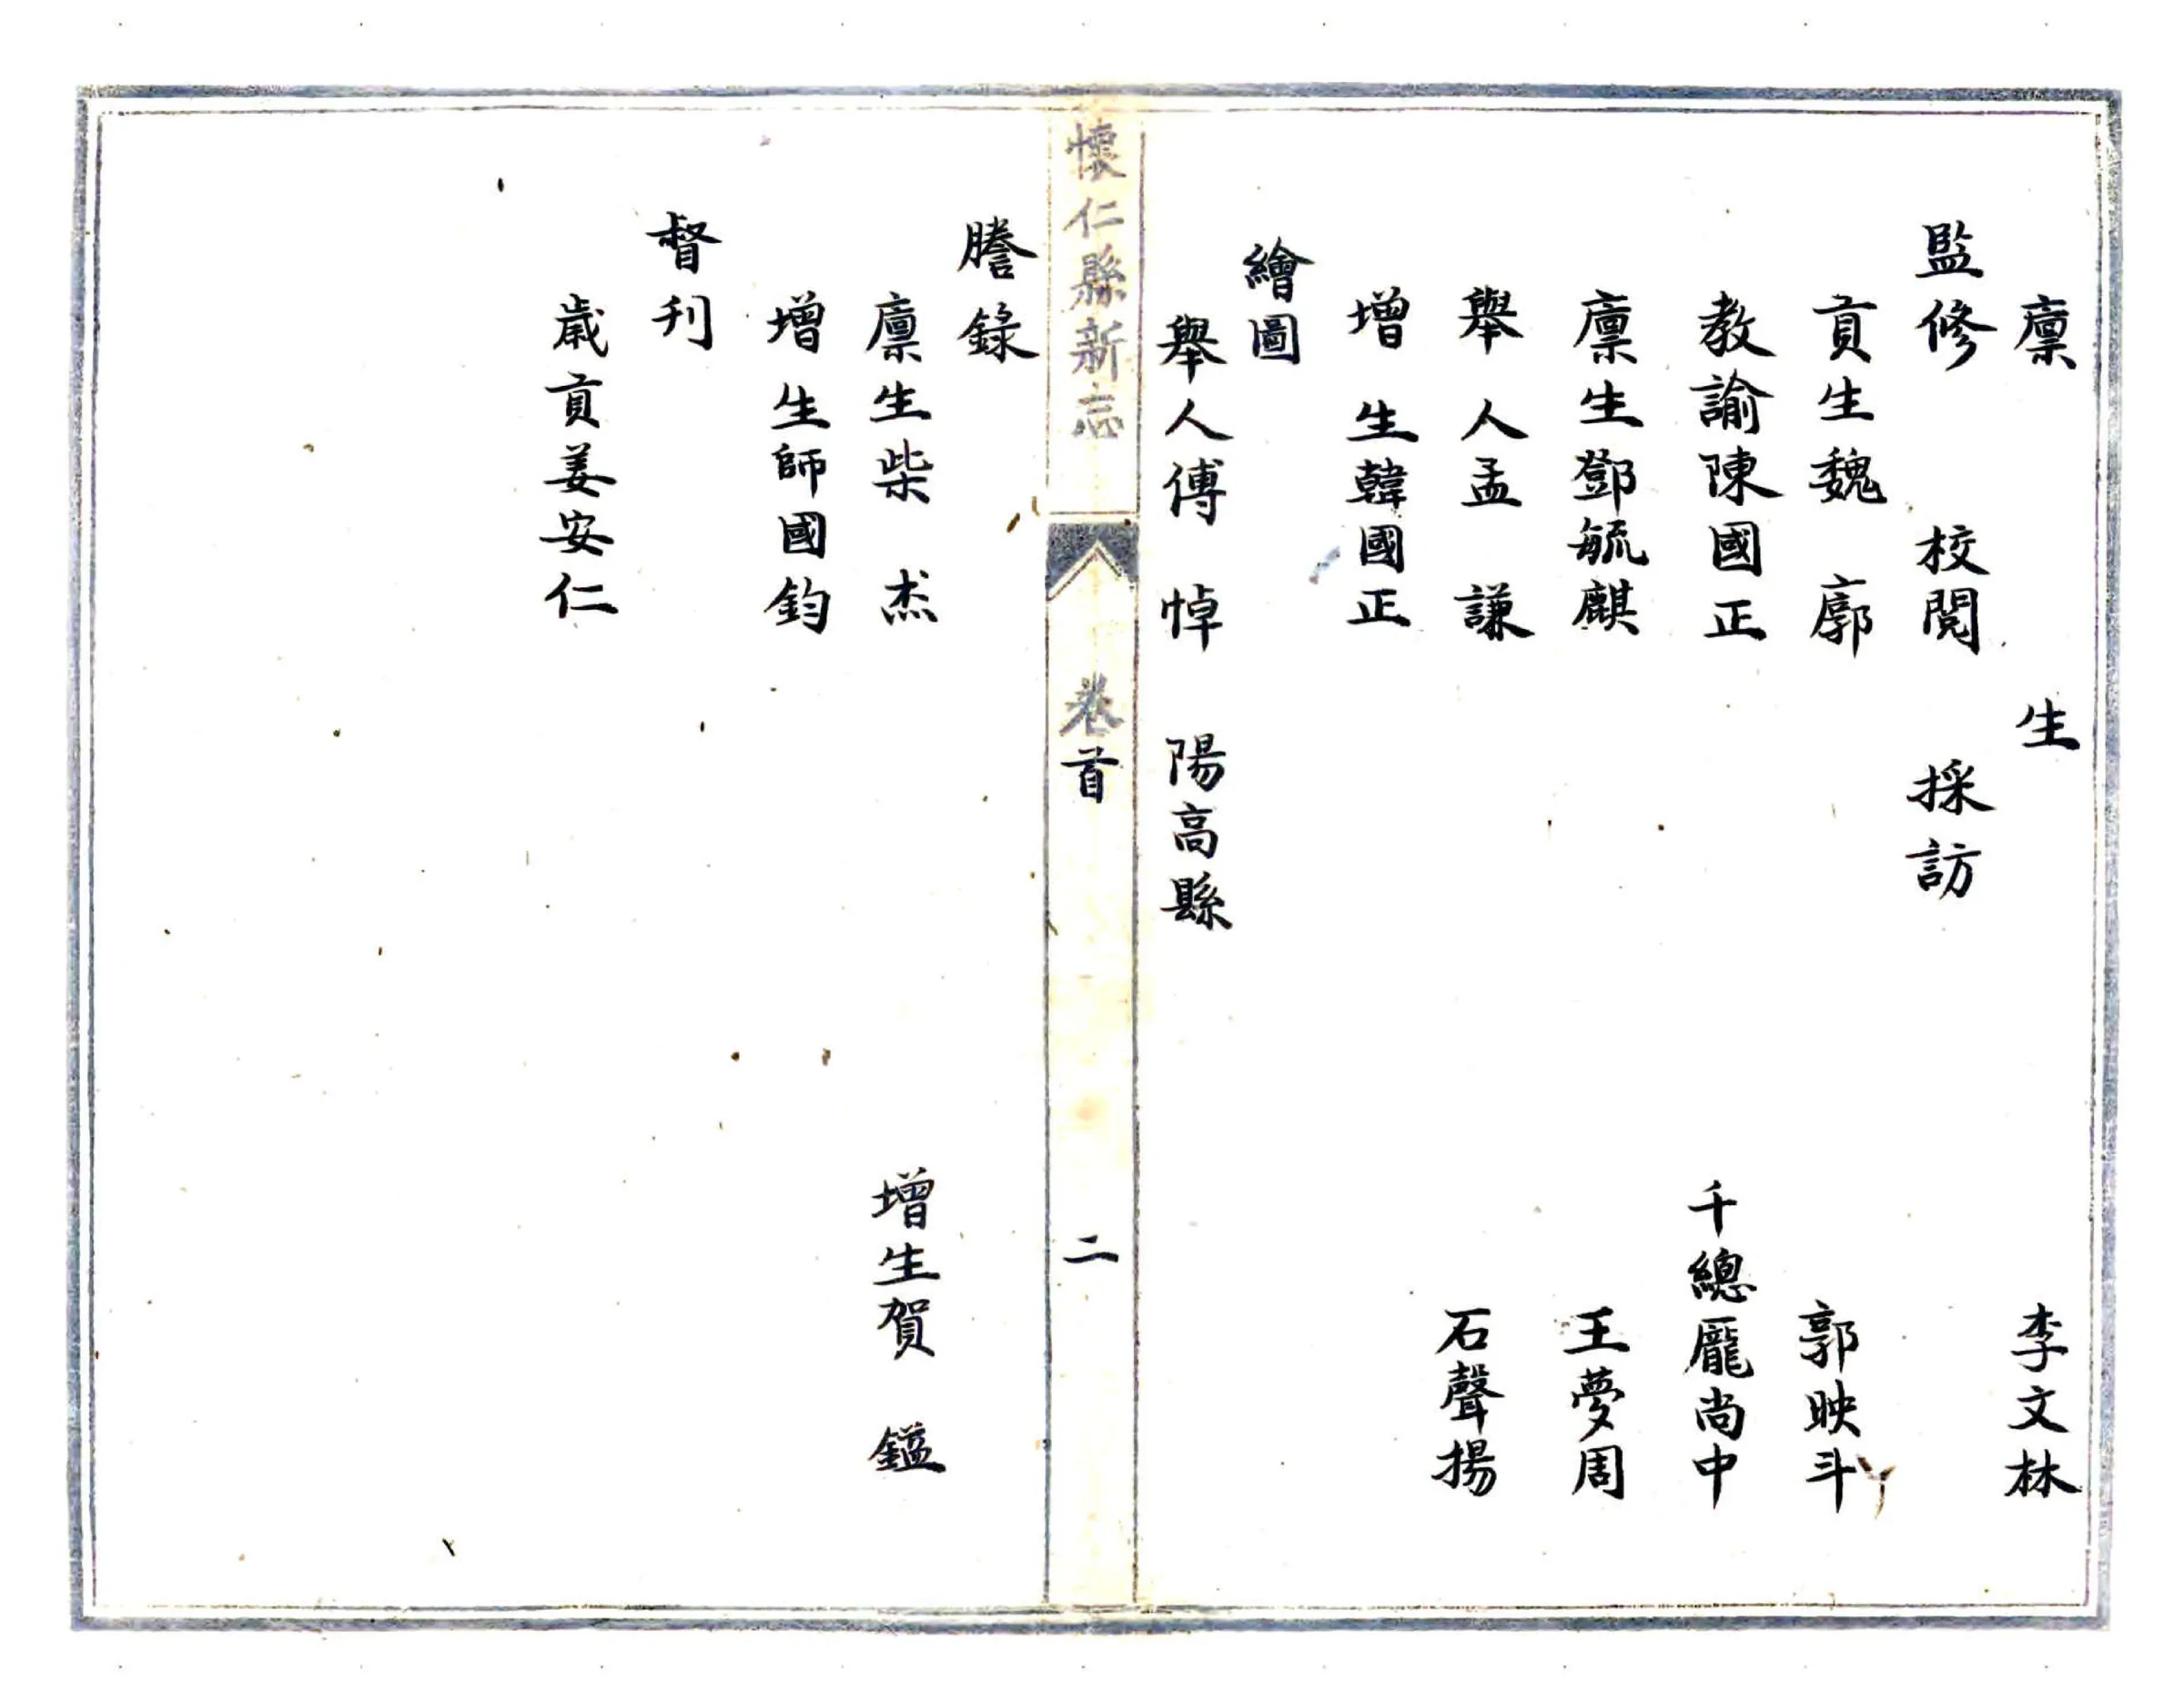 廪生 李文林
監修 校閱 採訪
貢生魏廓 郭映斗
教諭陳國正 千總龐尚中
廪生鄧毓麒 王夢周
舉人孟謙 石聲揚
增生韓國正
繪圖
舉人傅悼 陽高縣
懷仁縣新志 卷首 二
謄錄
廪生柴杰 增生賀鎰
增生師國鈞
督刊
歲貢姜安仁